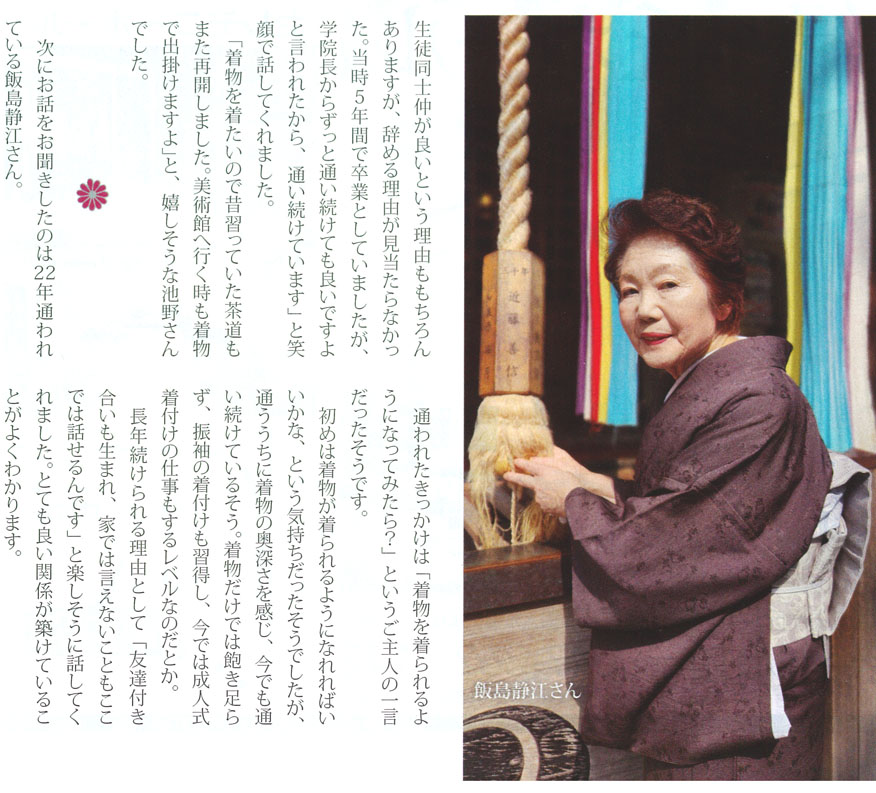 生徒同士仲が良いという理由ももちろん
ありますが、辞める理由が見当たらなかっ
た。当時5年間で卒業としていましたが、
学院長からずっと通い続けても良いですよ
と言われたから、通い続けています」と笑
顔で話してくれました。
「着物を着たいので昔習っていた茶道も
また再開しました。美術館へ行く時も着物
で出掛けますよ」と、嬉しそうな池野さん
でした。
次にお話をお聞きしたのは22年通われ
ている飯島静江さん。
通われたきっかけは「着物を着られるよ
うになってみたら?」というご主人の一言
だったそうです。
初めは着物が着られるようになれればい
いかな、という気持ちだったそうでしたが、
通ううちに着物の奥深さを感じ、今でも通
い続けているそう。着物だけでは飽き足ら
ず、振袖の着付けも習得し、今では成人式
着付けの仕事もするレベルなのだとか。
長年続けられる理由として「友達付き
合いも生まれ、家では言えないこともここ
では話せるんです」と楽しそうに話してく
れました。とても良い関係が築けているこ
とがよくわかります。
近藤善信
飯島静江さん